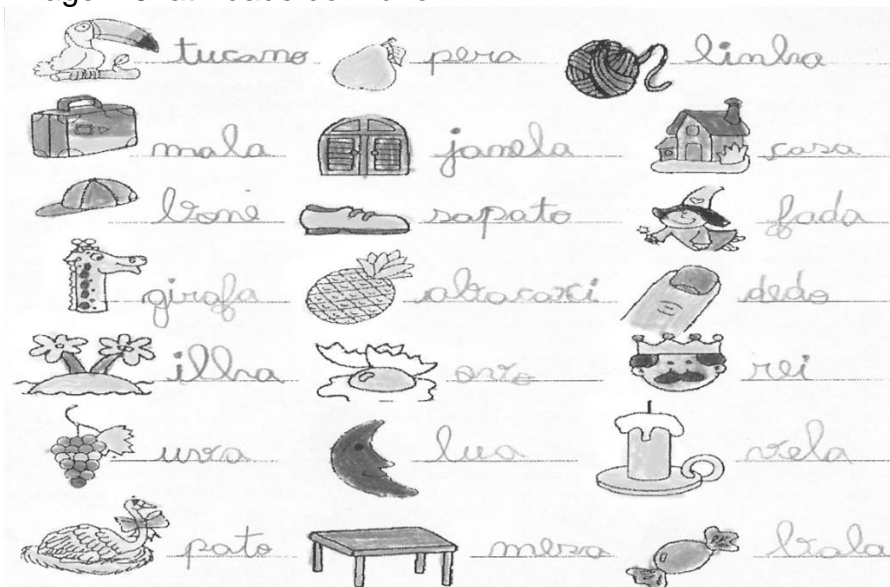 tucano pera linha
mala janela casa
boné sapato fada
girafa abacaxi dedo
ilha ovo rei
uva lua vela
pato mesa bala